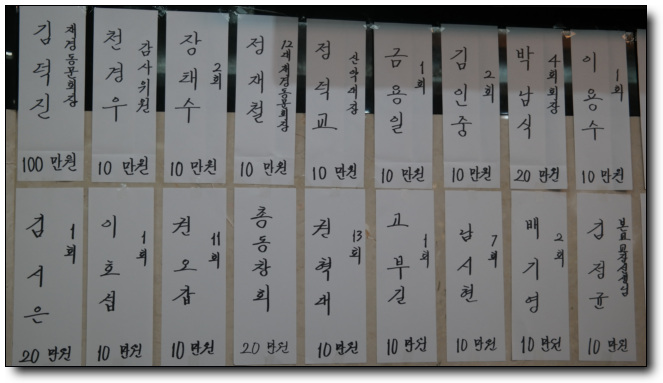 재경동문회장
김덕진
100 만원
감사위원
천경우
10 만원
2회
장태수
10 만원
12대재경동문회장
정재철
10 만원
산악대장
정덕교
10 만원
1회
금용일
10 만원
2회
김인중
10 만원
4회회장
박남식
20 만원
1회
이용수
10 만원
1회
김서은
20 만원
1회
이호섭
10 만원
11회
권오갑
10 만원
총동창회
20 만원
13회
권혁대
10 만원
1회
고부길
10 만원
7회
남시현
10 만원
2회
배기영
10 만원
본교교장선생님
김점균
10 만원